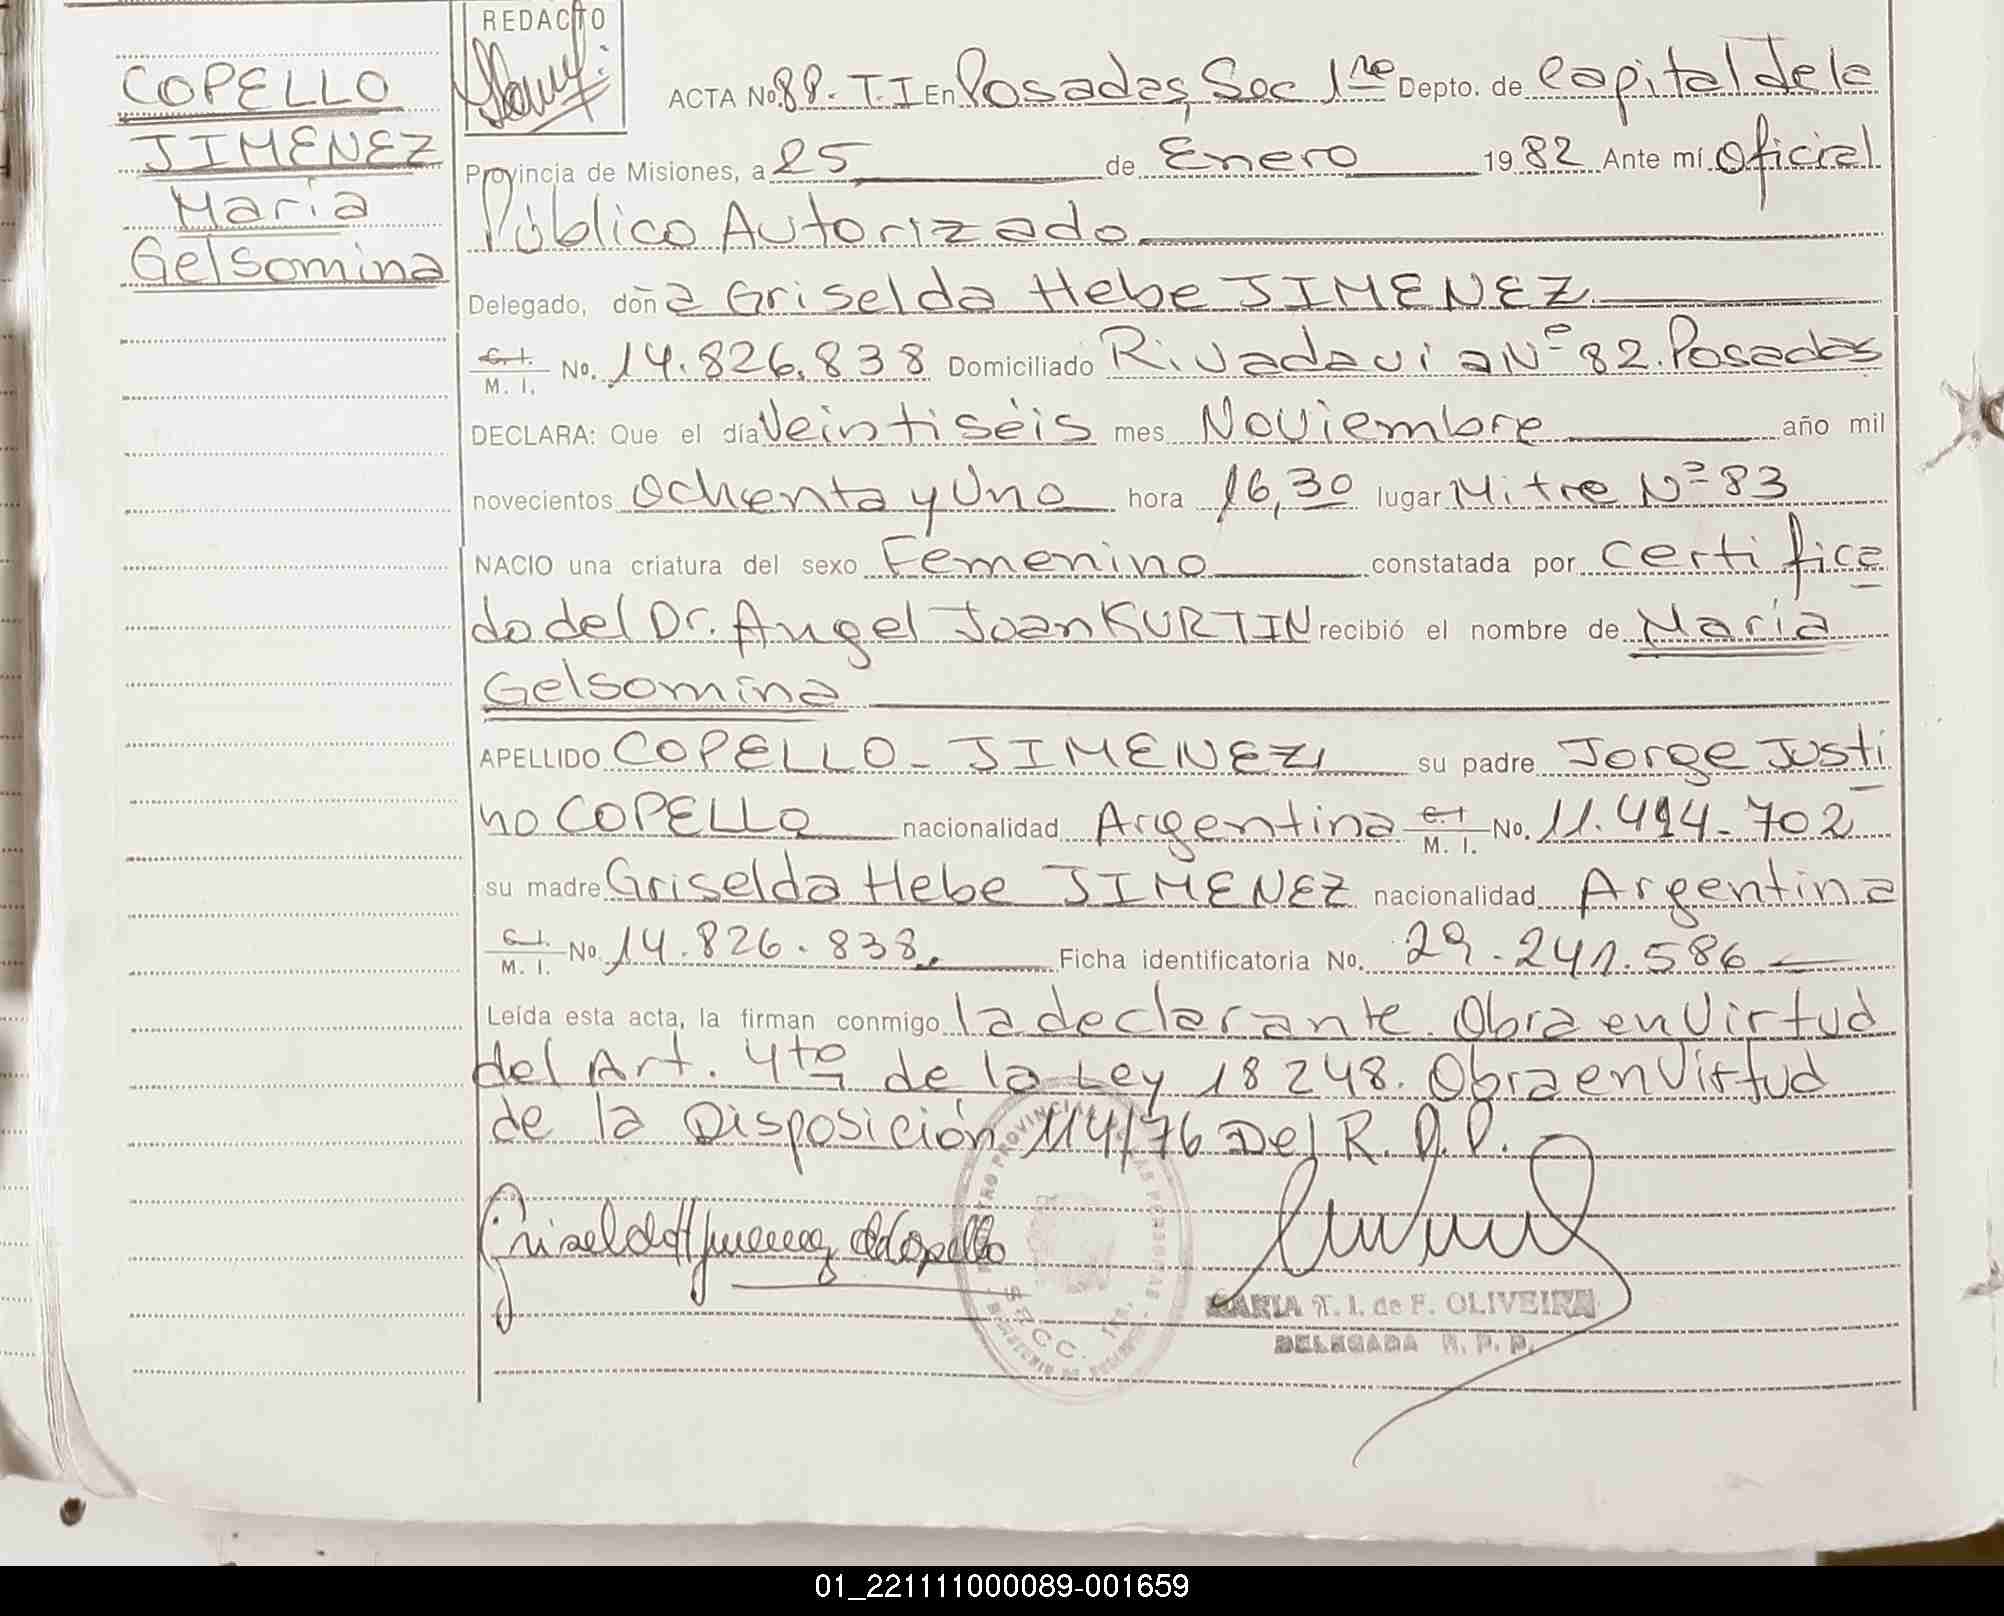 REDACTO
COPELLO
JIMENEZ
María
Gelsomina
ACTA No. 88. T. I En Posadas, Secc 1ra Depto. de Capital de la
Provincia de Misiones, a 25 de Enero 1982 Ante mí Oficial
Público Autorizado
Delegado, doña Griselda Hebe JIMENEZ
C. I. M. I. No. 14.826.838 Domiciliado Rivadavia Nº 82. Posadas
DECLARA: Que el día Veintiséis mes Noviembre año mil
novecientos Ochenta y Uno hora 16,30 lugar Mitre Nº 83
NACIO una criatura del sexo Femenino constatada por certifica
do del Dr. Angel Joan KURTIN recibió el nombre de María
Gelsomina
APELLIDO COPELLO - JIMENEZ, su padre Jorge Justi
no COPELLO nacionalidad Argentina C. I. M. I. No. 11.494.702
su madre Griselda Hebe JIMENEZ nacionalidad Argentina
C. I. M. I. No. 14.826.838. Ficha identificatoria No. 29.241.586
Leída esta acta, la firman conmigo la declarante. Obra en Virtud
del Art. 4to de la Ley 18248. Obra en Virtud
de la Disposición 114/76 Del R. P. P.
Griselda H Jimenez de Copello
MARIA T. I. de F. OLIVEIRA
DELEGADA R. P. P.
SECC. 1ra.
01_221111000089-001659